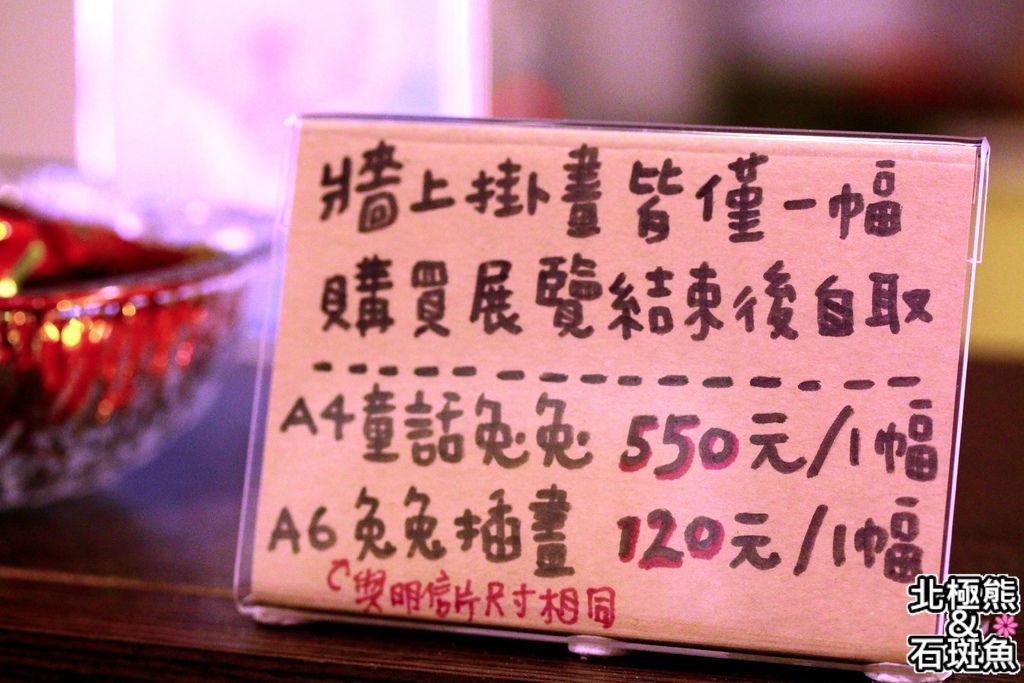 牆上掛畫皆僅一幅
購買展覽結束後自取
A4童話兔兔 550元/1幅
A6兔兔插畫 120元/1幅
與明信片尺寸相同
北極熊
&
石斑魚